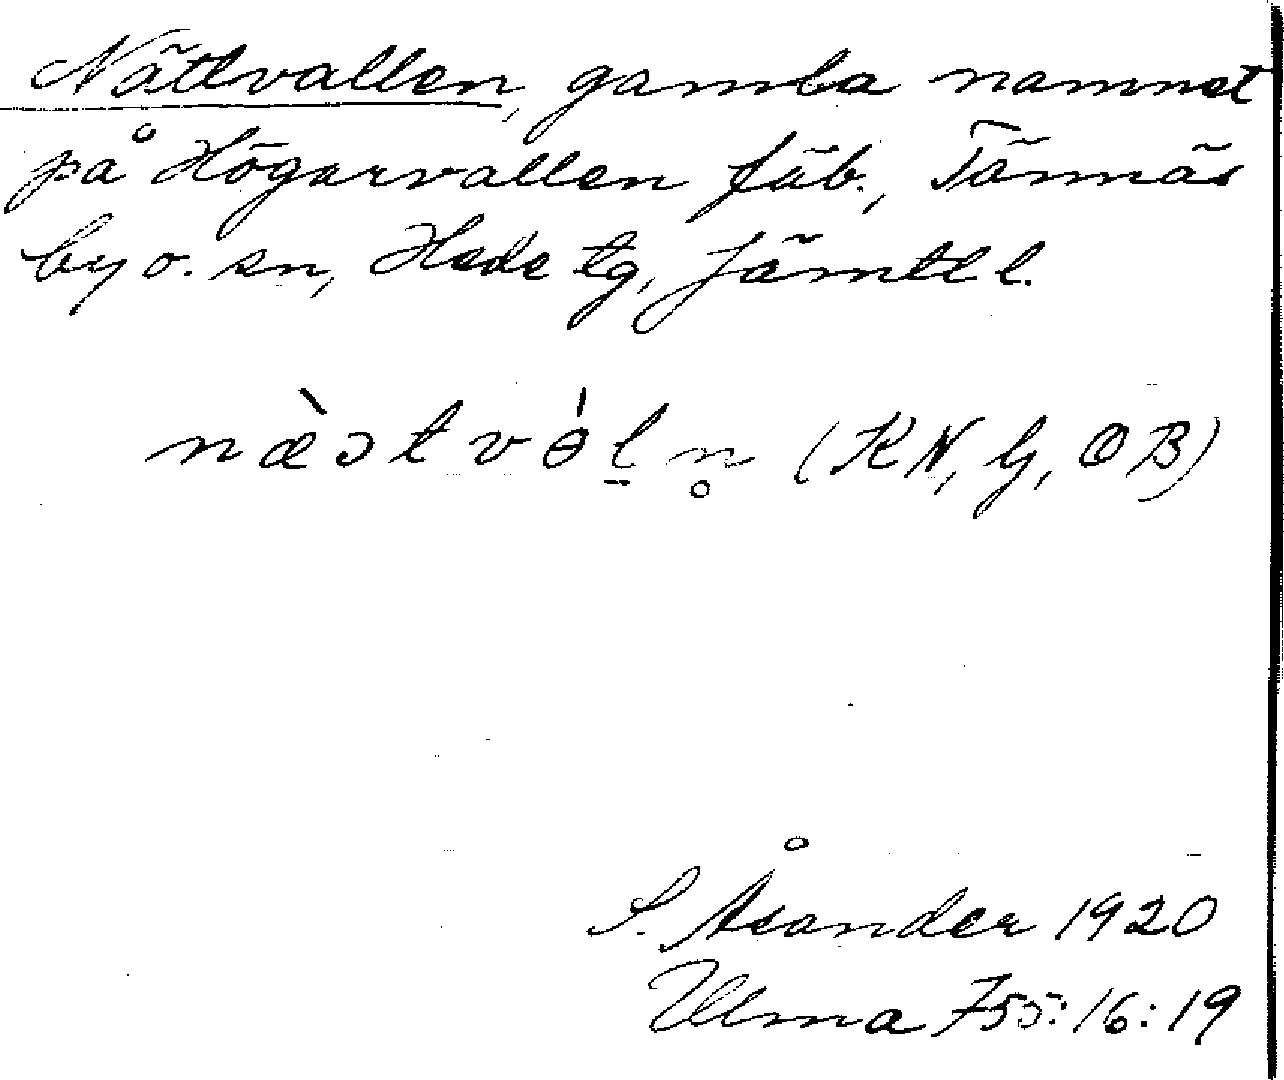 Nättvallen, gamla namnet
på Högarvallen fäb., Tännäs
by o. sn, Hede tg, Jämtl l.
næ̀ɔtvɵ́l̠n̥ (KN, G, OB)
S. Åsander 1920
Ulma 755:16:19